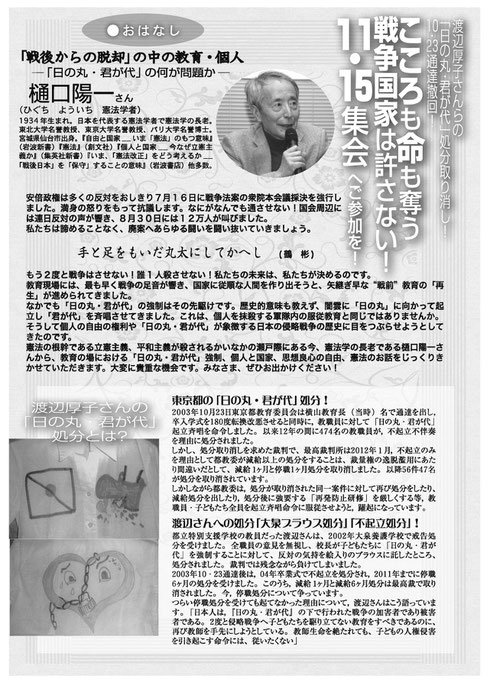 渡辺厚子さんらの
「日の丸・君が代」処分取り消し!
10・23通達撤回!
こころも命も奪う
戦争国家は許さない!
11・15集会へご参加を!
●おはなし
「戦後からの脱却」の中の教育・個人
―「日の丸・君が代」の何が問題か―
樋口陽一さん
(ひぐち よういち 憲法学者)
1934年生まれ。日本を代表する憲法学者で憲法学の長老。
東北大学名誉教授、東京大学名誉教授、パリ大学名誉博士。
宮城県仙台市出身。『自由と国家__いま「憲法」のもつ意味』
(岩波新書)『憲法』(創文社)『個人と国家__今なぜ立憲主
義か』(集英社新書)『いま、「憲法改正」をどう考えるか__
「戦後日本」を「保守」することの意味』(岩波書店)他多数。
安倍政権は多くの反対をおしきり7月16日に戦争法案の衆院本会議採決を強行し
ました。満身の怒りをもって抗議します。なにがなんでも通させない!国会周辺に
は連日反対の声が響き、8月30日には12万人が叫びました。
私たちは諦めることなく、廃案へあらゆる闘いを闘い抜いていきましょう。
手と足をもいだ丸太にしてかへし (鶴 彬)
もう2度と戦争はさせない!誰1人殺させない!私たちの未来は、私たちが決めるのです。
教育現場には、最も早く戦争の足音が響き、国家に従順な人間を作り出そうと、矢継ぎ早な“戦前”教育の「再
生」が進められてきました。
なかでも「日の丸・君が代」の強制はその先駆けです。歴史的意味も教えず、闇雲に「日の丸」に向かって起
立し「君が代」を斉唱させてきました。これは、個人を抹殺する軍隊内の服従教育と同じではありませんか。
そうして個人の自由の権利や「日の丸・君が代」が象徴する日本の侵略戦争の歴史に目をつぶらせようとして
きたのです。
憲法の根幹である立憲主義、平和主義が殺されるかいなかの瀬戸際にある今、憲法学の長老である樋口陽一さ
んから、教育の場における「日の丸・君が代」強制、個人と国家、思想良心の自由、憲法のお話をじっくりき
かせていただきます。大変に貴重な機会です。みなさま、ぜひお出かけください!
渡辺厚子さんの
「日の丸・君が代」
処分とは?
東京都の「日の丸・君が代」処分!
2003年10月23日東京都教育委員会は横山教育長(当時)名で通達を出し,
卒入学式を180度転換改悪させると同時に,教職員に対して「日の丸・君が代」
起立斉唱を命令しました。以来12年の間に474名の教職員が,不起立不伴奏
を理由に処分されました。
しかし、処分取り消しを求めた裁判で、最高裁判所は2012年1月,不起立のみ
を理由として都教委が減給以上の処分をすることは、裁量権の逸脱濫用にあた
り間違いだとして、減給1ヶ月と停職1ヶ月分を取り消しました。以降56件47名
が処分を取り消されています。
しかしながら都教委は、処分が取り消された同一案件に対して再び処分をしたり、
減給処分を出したり,処分後に強要する「再発防止研修」を厳しくする等,教
職員・子どもたち全員を起立斉唱命令に服従させようと、躍起になっています。
渡辺さんへの処分「大泉ブラウス処分」「不起立処分」!
都立特別支援学校の教員だった渡辺さんは、2002年大泉養護学校で戒告処
分を受けました。全職員の意見を無視し、校長が子どもたちに「日の丸・君が
代」を強制することに対して、反対の気持を絵入りのブラウスに託したところ、
処分されました。裁判では残念ながら負けてしまいました。
2003年10・23通達後は、04年卒業式で不起立を処分され,2011年までに停職
6ヶ月の処分を受けました。このうち、減給1ヶ月と減給6ヶ月処分は最高裁で取り
消されました。今、停職処分について争っています。
つらい停職処分を受けても起てなかった理由について,渡辺さんはこう語っていま
す。「日本人は,「日の丸・君が代」の下で行われた戦争の加害者であり被害
者である。2度と侵略戦争へ子どもたちを駆り立てない教育をすべきであるのに、
再び教師を手先にしようとしている。教師生命を絶たれても、子どもの人権侵害
を引き起こす命令には、従いたくない」